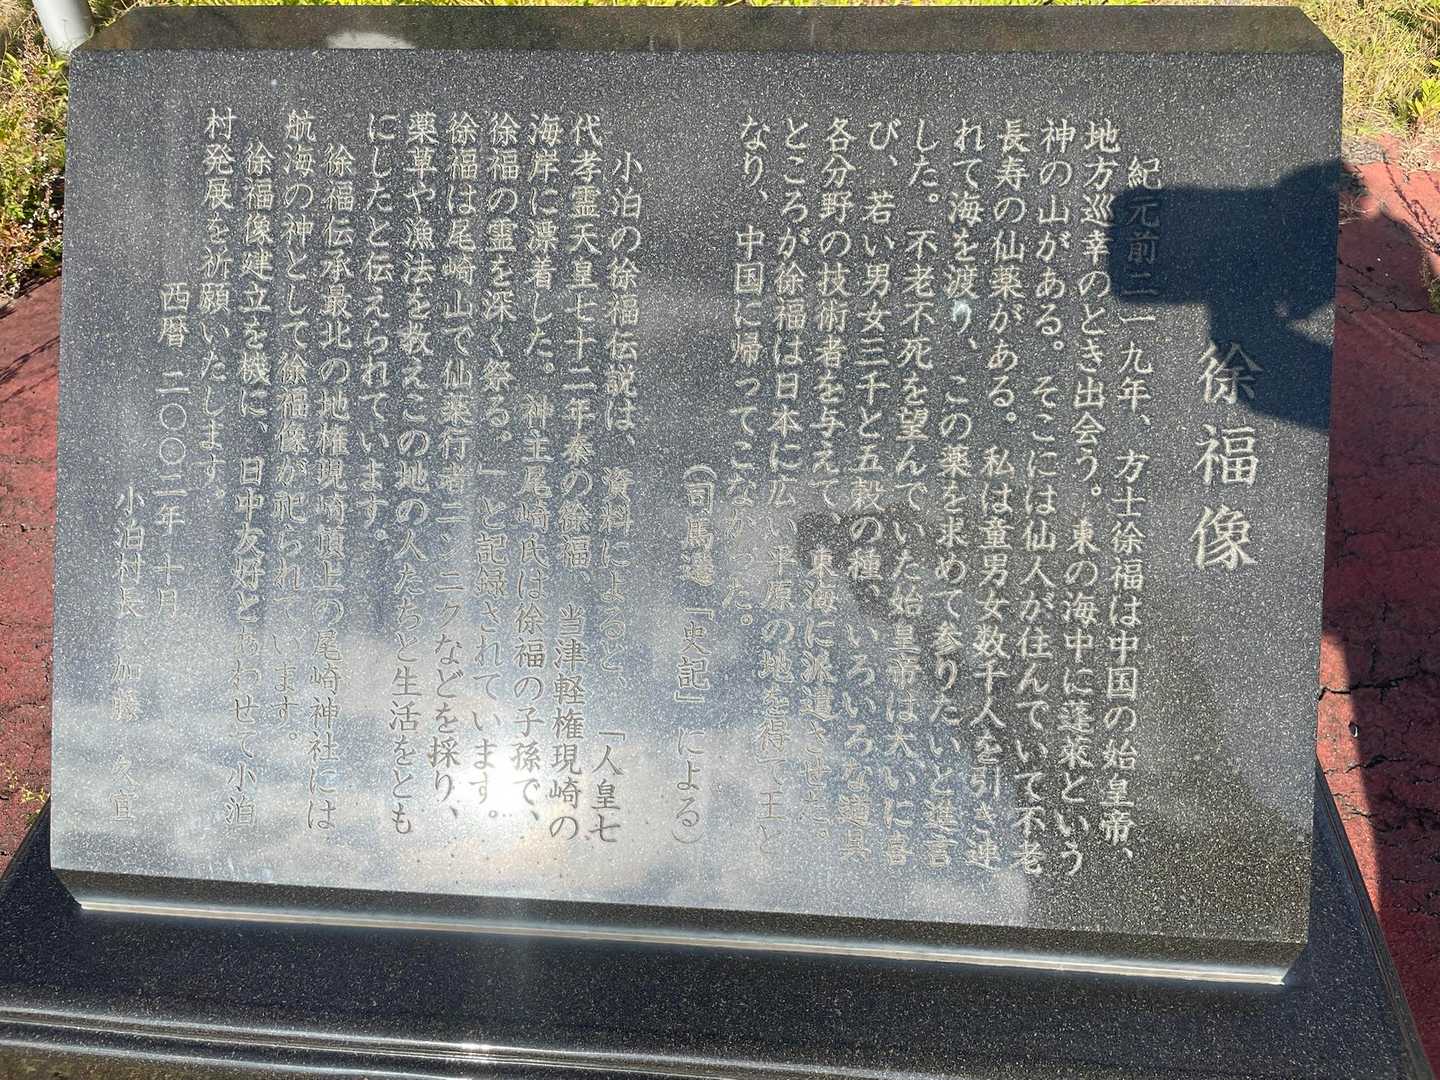 徐福像
紀元前二一九年、方士徐福は中国の始皇帝、
地方巡幸のとき出会う。東の海中に蓬萊という
神の山がある。そこには仙人が住んでいて不老
長寿の仙薬がある。私は童男女数千人を引き連
れて海を渡り、この薬を求めて参りたいと進言
した。不老不死を望んでいた始皇帝は大いに喜
び、若い男女三千と五穀の種、いろいろな道具
各分野の技術者を与えて、東海に派遣させた。
ところが徐福は日本に広い平原の地を得て王と
なり、中国に帰ってこなかった。
(司馬遷「史記」による)
小泊の徐福伝説は、資料によると、「人皇七
代孝霊天皇七十二年秦の徐福、当津軽権現崎の
海岸に漂着した。神主尾崎氏は徐福の子孫で、
徐福の霊を深く祭る。」と記録されています。
徐福は尾崎山で仙薬行者ニンニクなどを採り、
薬草や漁法を教えこの地の人たちと生活をとも
にしたと伝えられています。
徐福伝承最北の地権現崎頂上の尾崎神社には
航海の神として徐福像が祀られています。
徐福像建立を機に、日中友好とあわせて小泊
村発展を祈願いたします。
西暦 二〇〇二年 十月
小泊村長 加藤 久宜